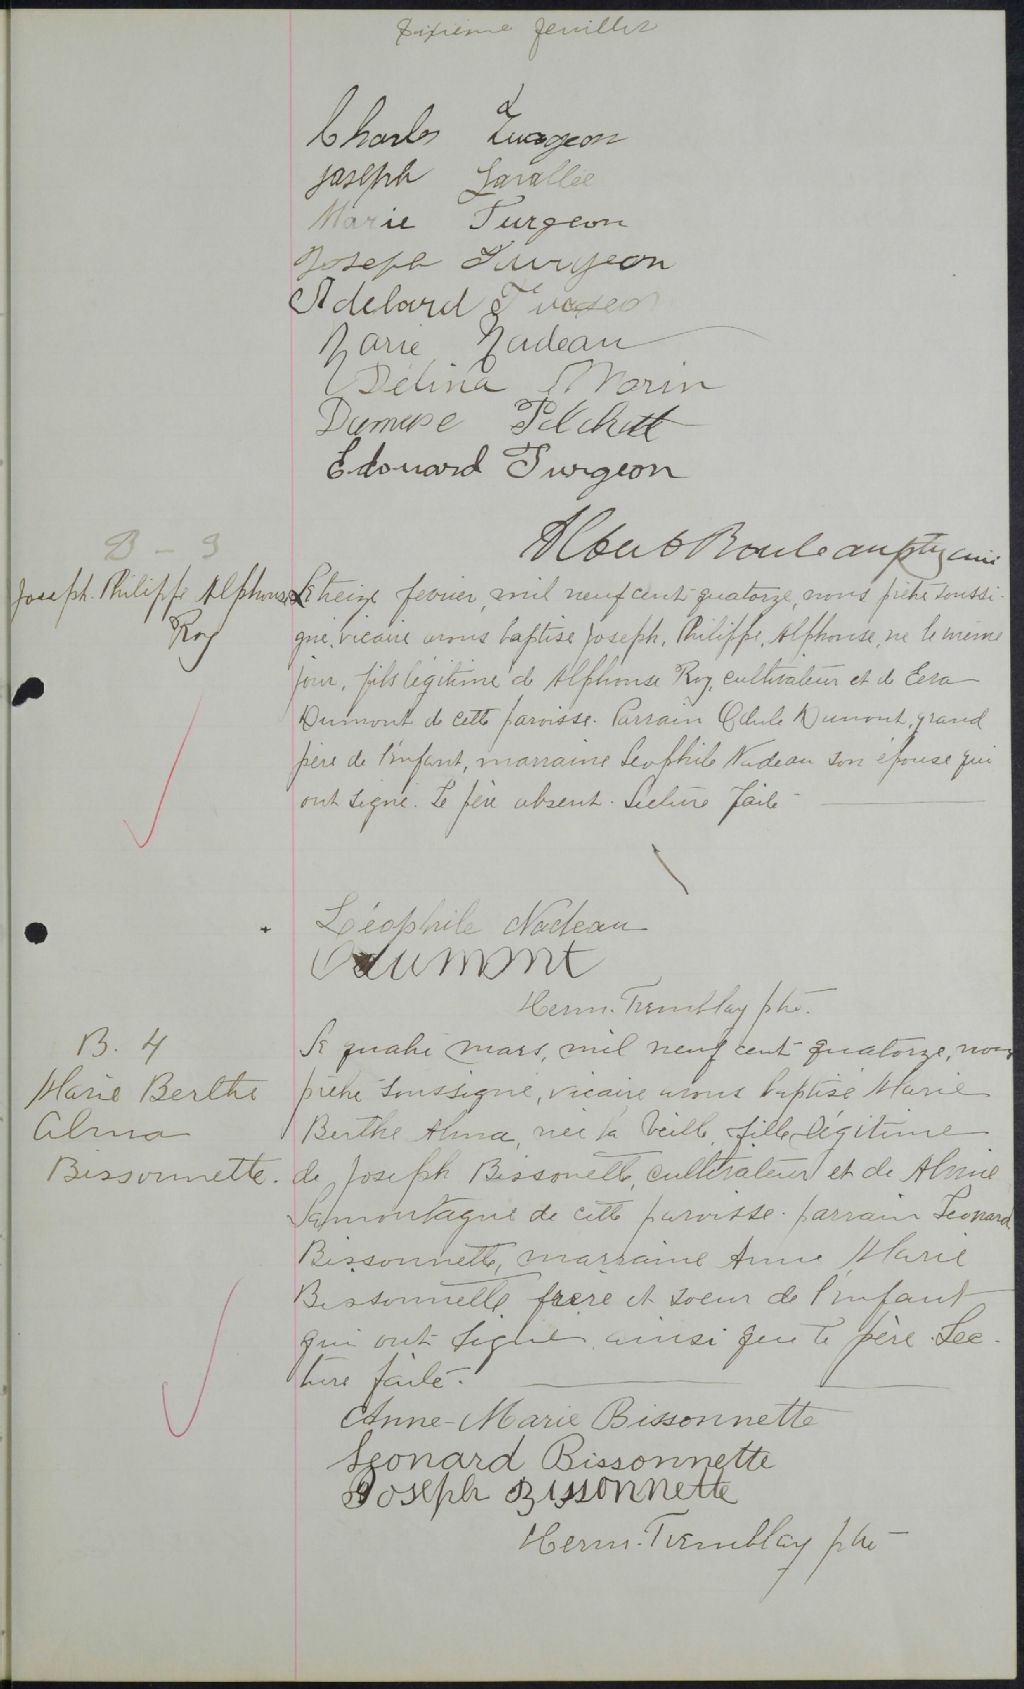 Sixième feuillet
Charles Turgeon
Joseph Lavallee
Marie Turgeon
Joseph Turgeon
Adelard Turgeon
Marie Nadeau
Délina Morin
Damase Pelchatt
Edouard Turgeon
Albert Rouleau ptre curé
B - 3
Joseph. Philippe Alphonse
Roy
Le treize fevrier, mil neuf cent quatorze, nous prêtre soussi-
gné, vicaire avons baptisé Joseph, Philippe, Alphonse, né le même
jour, fils légitime de Alphonse Roy, cultivateur et de Eva
Dumont de cette paroisse. Parrain Odule Dumont, grand
père de l'enfant, marraine Leophile Nadeau son épouse qui
ont signé. Le père absent. Lecture faite
Léophile Nadeau
O Dumont
Herm. Tremblay ptre.
B. 4
Marie Berthe
Alma
Bissonnette.
Le quatre mars, mil neuf cent quatorze, nous
prêtre soussigné, vicaire avons baptisé Marie
Berthe Alma, née la veille, fille légitime
de Joseph Bissonette, cultivateur et de Almie
Lamontagne de cette paroisse. parrain Leonard
Bissonnette, marraine Anne Marie
Bissonnette frère et soeur de l'enfant
qui ont signé ainsi que le père. Lec-
ture faite.
Anne-Marie Bissonnette
Leonard Bissonnette
Joseph Bissonnette
Herm. Tremblay ptre